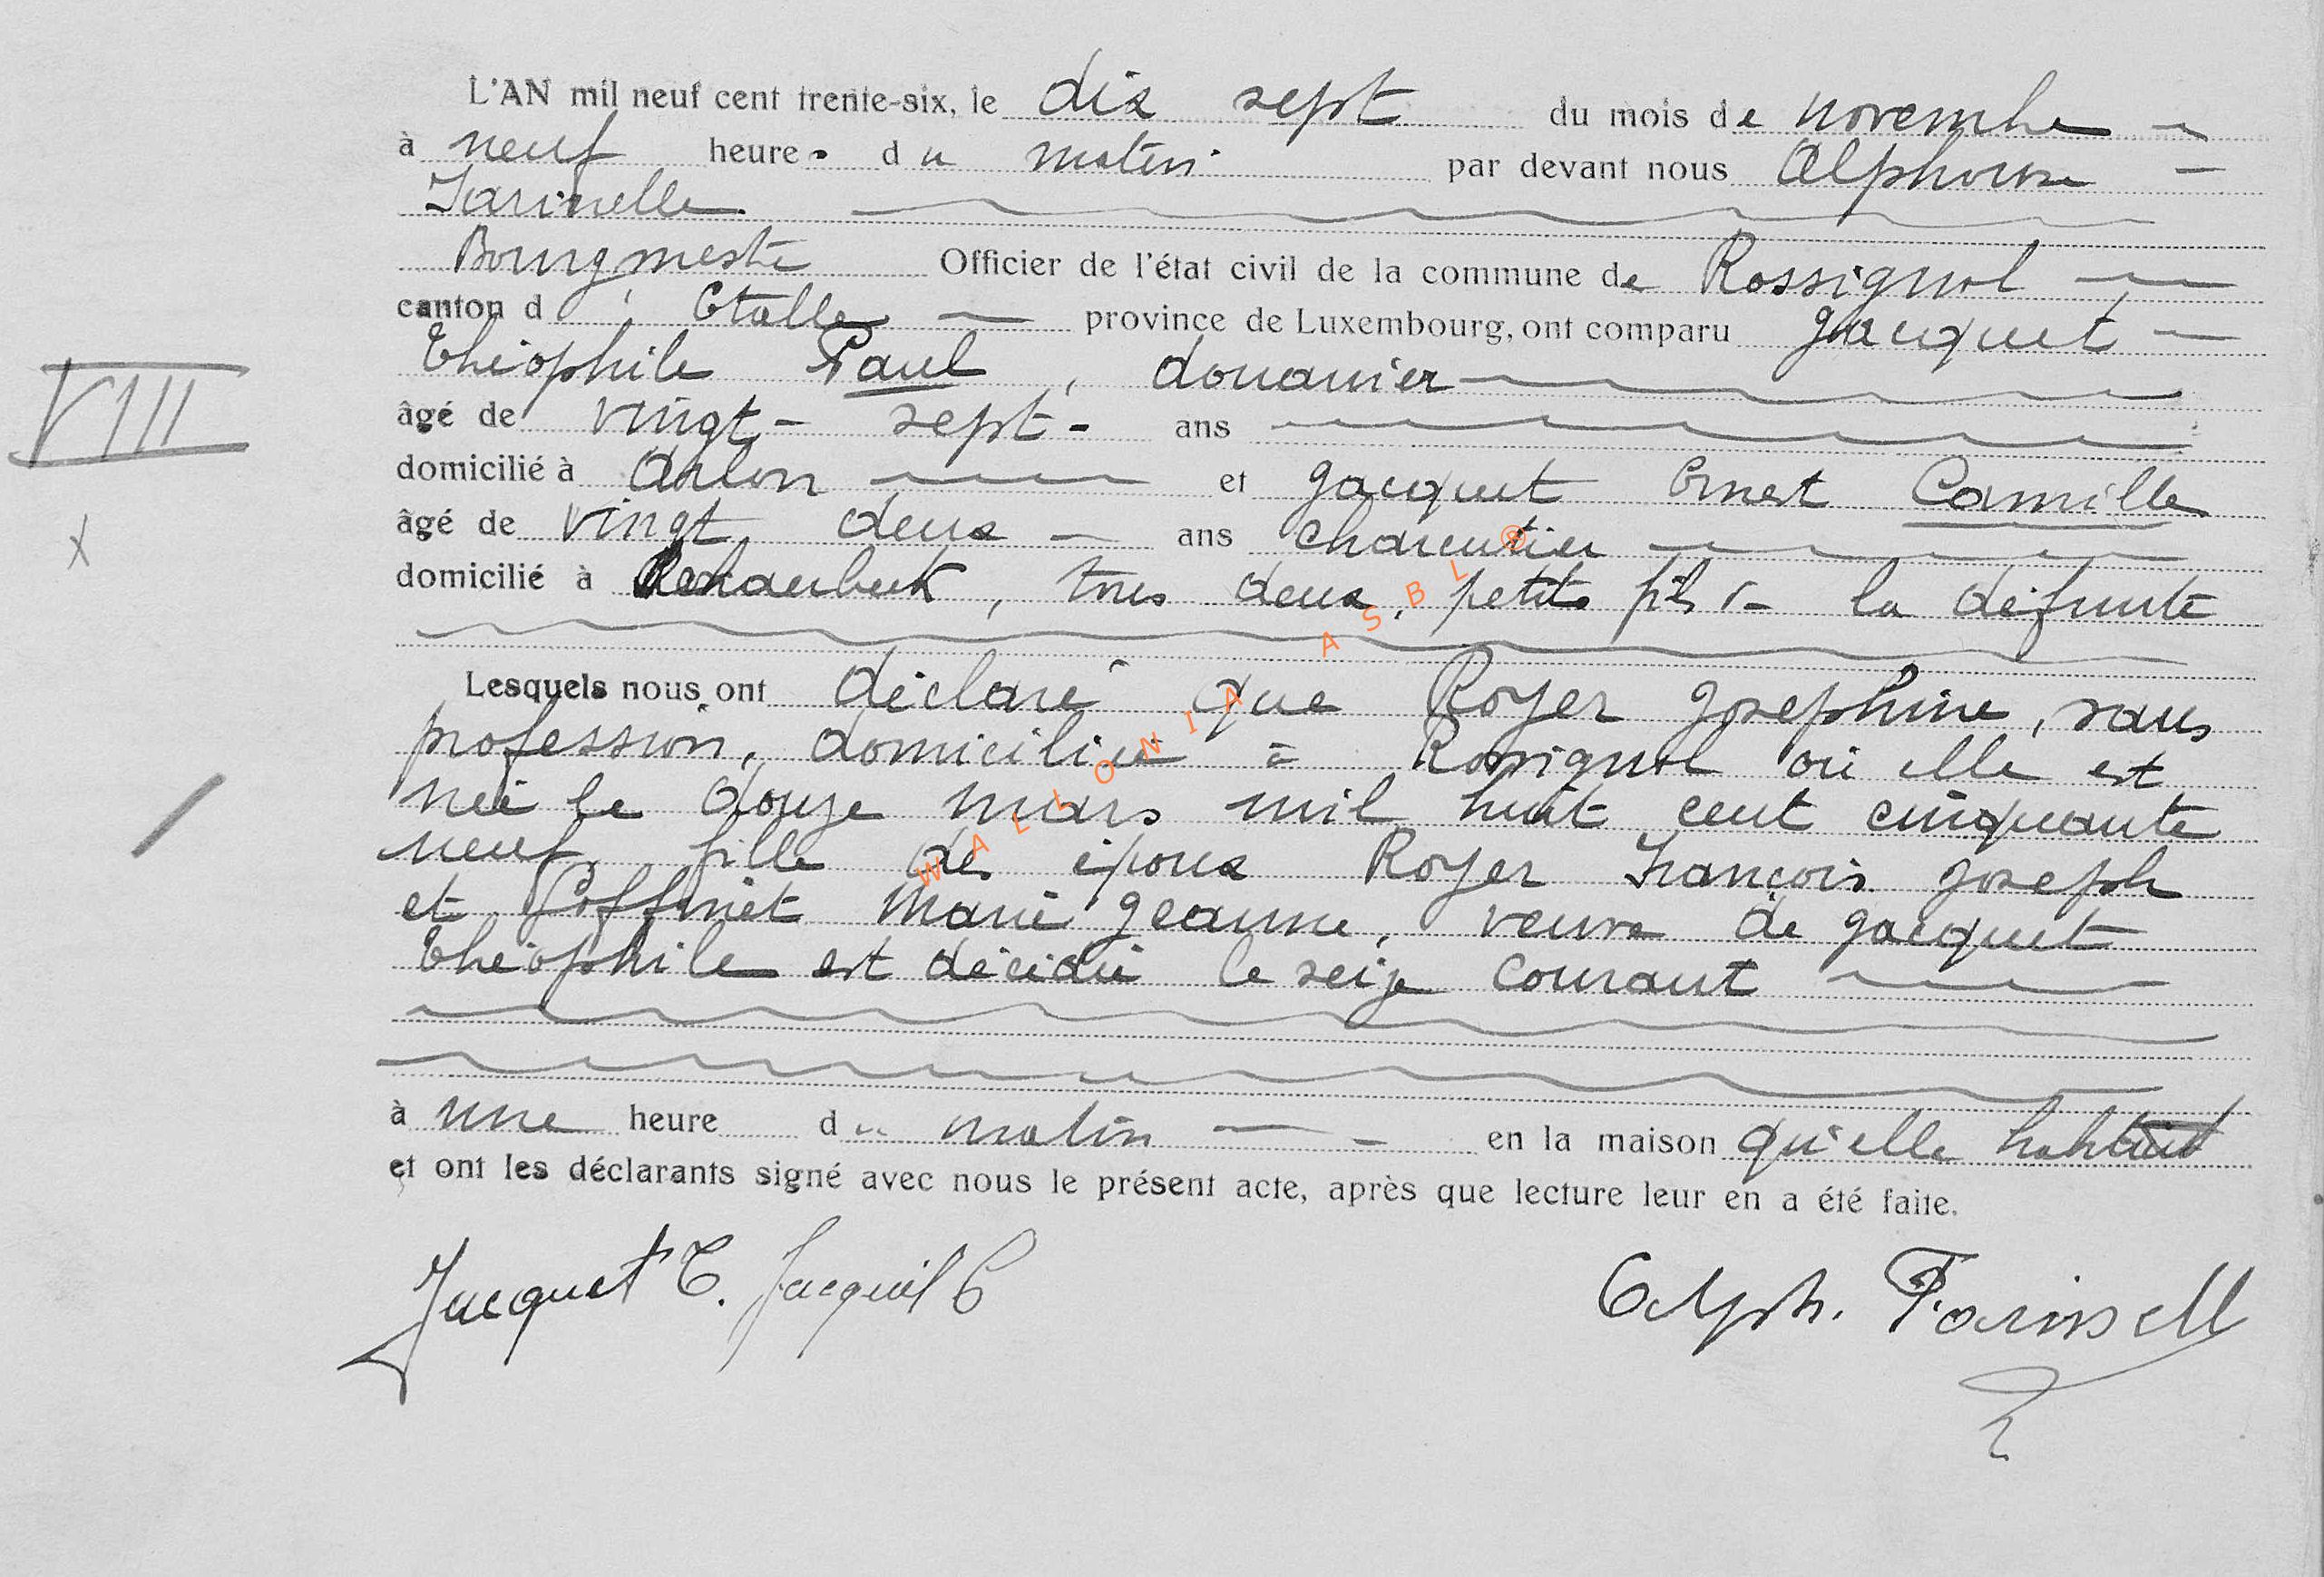 L'AN mil neuf cent trente-six, le dix sept du mois de novembre
à neuf heures du matin par devant nous Alphonse
Farinelle
Bourgmestre Officier de l'état civil de la commune de Rossignol
canton d'Etalle province de Luxembourg, ont comparu Jacquet
Théophile Paul, douanier
âgé de vingt-sept- ans
domicilié à Arlon et Jacquet Ernest Camille
VIII
âgé de vingt deux ans charcutier
domicilié à Schaerbeek, tous deux, petits fils de la défunte
X
Lesquels nous ont déclaré que Royer Joséphine, sans
profession, domiciliée à Rossignol où elle est
née le douze mars mil huit cent cinquante
neuf, fille des époux Royer François Joseph
et Goffinet Marie Jeanne, veuve de Jacquet
Théophile est décédée le seize courant
à une heure du matin en la maison qu'elle habitait
et ont les déclarants signé avec nous le présent acte, après que lecture leur en a été faite.
Jacquet T. Jacquet C Alph. Farinelle
WALLONIA ASBL ®